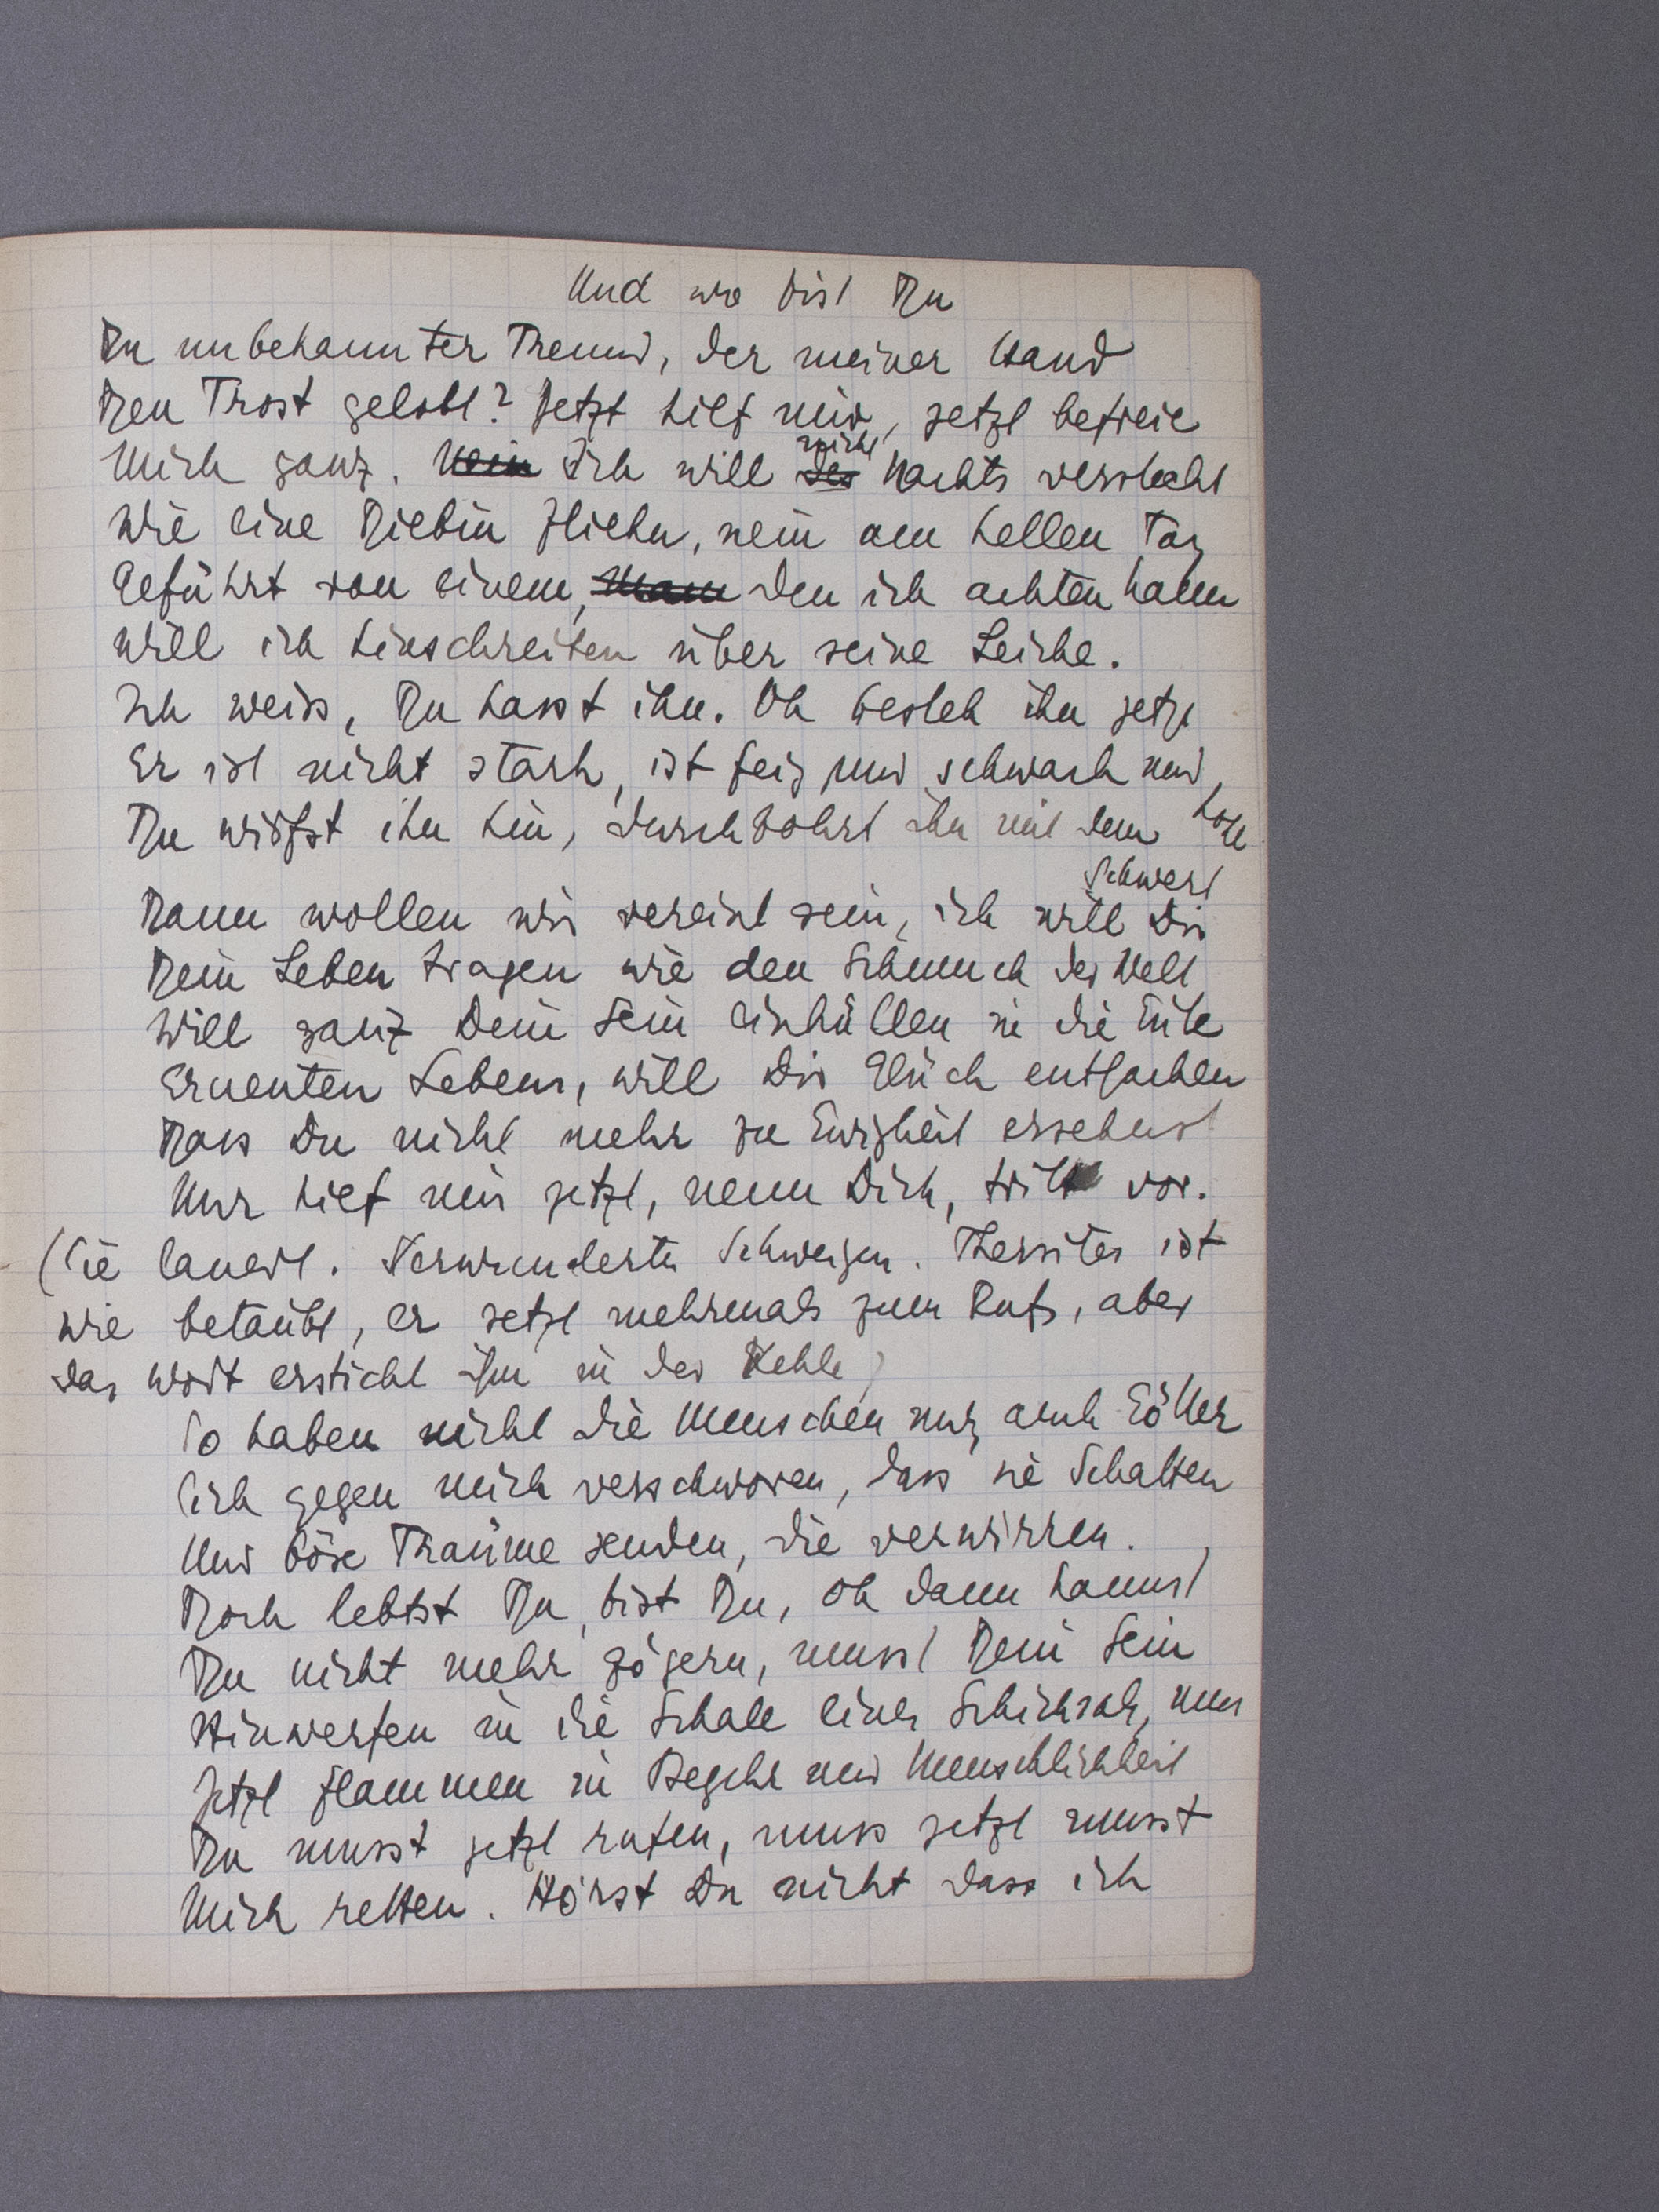 Und wo bist Du
Du unbekannter Freund, der meiner Hand
Den Trost gelobt? Jetzt hilf mir, jetzt befreie
Mich ganz. Nein Ich will des nicht Nachts versteckt
Wie eine Diebin fliehn, nein am hellen Tag
Geführt von einem, Mann den ich achten kann
Will ich hinschreiten über seine Leiche.
Ich weiss, Du hasst ihn. Oh besteh ihn jetzt
Er ist nicht stark, ist feig und schwach und hohl
Du wirfst ihn hin, durchbohrst ihn mit dem Schwert
Dann wollen wir vereint sein, ich will Dir
Dein Leben tragen wie den Schmuck der Welt
Will ganz Dein Sein einhüllen in die
Erneuten Lebens, will Dir Glück entfachen
Dass Du nicht mehr zu Ewigkeit ersehnst
Nur hilf mir jetzt, nenn Dich, tritt vor.
(Sie lauert. Verwundertes Schweigen. Thersites ist
wie betäubt, er setzt mehrmals zum Rufe, aber
das Wort erstickt ihm in der Kehle)
So haben nicht die Menschen nur, auch Götter
Sich gegen mich verschworen, dass sie Schatten
Und böse Träume senden, die verwirren.
Doch lebst Du, bist Du, oh dann kannst
Du nicht mehr zögern, musst Dein Sein
Hinwerfen in die Schale eines Schicksals, musst
Jetzt flammen in Begehr und Menschlichkeit
Du musst jetzt rufen, muss jetzt musst
Mich retten. Hörst Du nicht dass ich